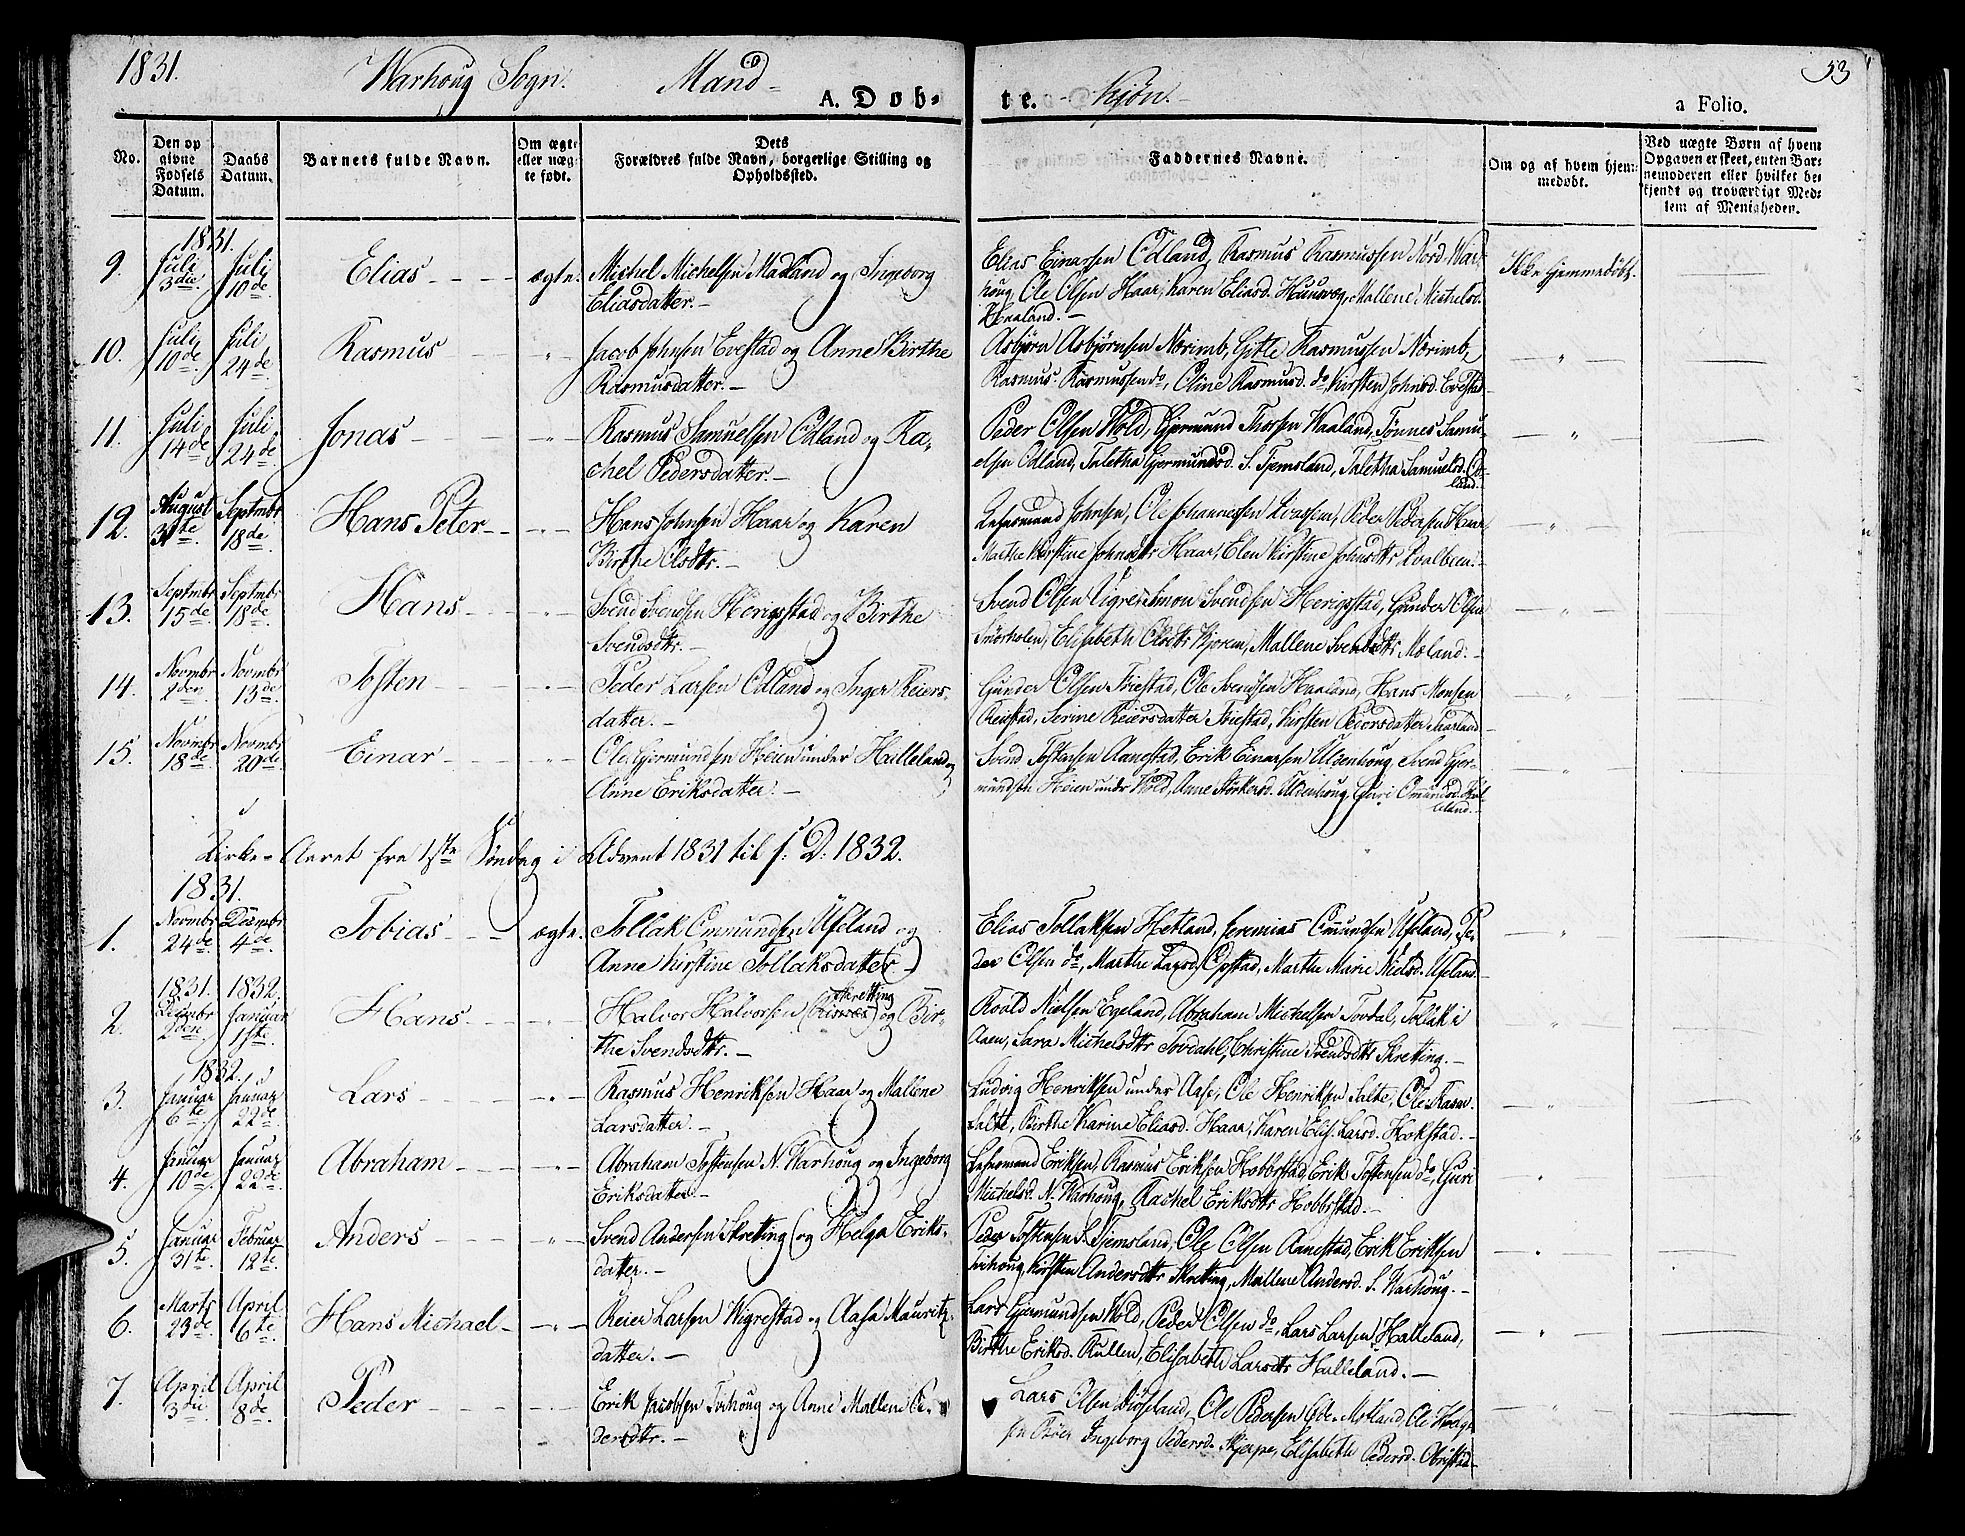 1831. Warhoug Sogn. Mand- A. Døb-
te. Kjøn.- a Folio. 53
No. Den opgivne Fødsels Datum. Daabs Datum. Barnets fulde Navn. Om ægte eller uægte født. Dets Forældres fulde Navn, borgerlige Stilling og Opholdssted. Faddernes Navne. Om og af hvem hjemmedøbt. Ved uægte Børn af hvem Opgaven er skeet, enten Barnemoderen eller hvilket bekjendt og troværdigt Medlem af Menigheden.
1831.
9. Juli 3die. Juli 10de. Elias - - - ægte. Michel Michelsen Madland og Ingeborg
Eliasdatter.-
Elias Einarsen Ødland, Rasmus Rasmussen Nord-War-
houg, Ole Olsen Haar, Karen Eliasd. Huusveg, Mallene Michelsd.
Haaland.- Ikke hjemmedøbt.
10. Juli 10de Juli 24de Rasmus - " - Jacob Johnsen Evestad og Anne Birthe
Rasmusdatter.-
Asbjørn Asbjørnsen Norimb, Gitle Rasmussen Norimb,
Rasmus Rasmussen do, Oline Rasmusd. do, Kirsten Johnsd. Evestad
11. Juli 14de Juli 24de Jonas - " - Rasmus Samuelsen Ødland og Ra-
chel Pedersdatter.-
Peder Olsen Wold, Gjermund Thorsen Haaland, Tønnes Samu-
elsen Ødland, Taletha Gjermundsd. S. Tjemsland, Taletha Samuelsd. Ød-
land.
12. August 31te Septmbr 18de Hans Peter - " - Hans Johnsen Haar og Karen
Birthe Olsdtr.-
Johnsen, Ole Johannessen, Peder Pedersen Haar
Marthe Kirstine Johnsdtr Haar, Elen Kirstine Johnsdtr Qvalbein.-
13. Septmbr 15de Septmbr 18de Hans - " - Svend Svendsen Herigstad og Birthe
Svendsdtr.-
Svend Olsen Vigre, Simon Svendsen Herigstad, Gunder Olsen
Elisabeth Olsdtr Kjorem, Mallene Svendsdtr Mæland.-
14. Novmbr 2den Novmbr 13de Tosten - " - Peder Larsen Ødland og Inger Reiers-
datter.-
Gunder Olsen Friestad, Ole Svendsen Haaland, Hans Monsen
Reistad, Serine Reiersdatter Friestad, Kirsten Reiersdatter
15. Novmbr 18de Novmbr 20de Einar - " - Ole Gjermundsen Heien under Halleland og
Anne Eriksdatter.-
Svend Tostensen Aanestad, Erik Einarsen Ualdenhoug, Svend Gjer-
mundsen Heien under Wold, Anne, Guri Omundsd. Hal-
leland.-
Kirke-Aaret fra 1ste Søndag i Advent 1831 til s: D: 1832.
1831.
1. Novmbr 24de Desmbr 4de Tobias - - - ægte. Tollak Ommundsen Ueland og
Anne Kirstine Tollaksdatter.-
Elias Tollaksen Hetland, Jeremias Ommundsen Ueland, Pe-
der Olsen do, Marthe Larsd. Opstad, Marthe Marie Nielsd. Ueland
1831. 1832.
2. Desmbr 2den Januar 1ste Hans - " - Halvor Halvorsen Skretting og Bir-
the Svendsdtr.-
Roald Nielsen Egeland, Abraham Michelsen Tovdal, Tollak i
Aaen, Sara Michelsdtr Tovdahl, Christine Svendsdtr Skretting.-
1832.
3. Januar 6te Januar 22de Lars - " - Rasmus Henriksen Haar og Mallene
Larsdatter.-
Ludvig Henriksen under Aase, Ole Henriksen Salte, Ole Rasm.
Salte, Birthe Karine Eliasd. Haar, Karen Elis. Larsd. Hokstad.-
4. Januar 10de Januar 22de Abraham - " - Abraham Tostensen N. Warhoug og Ingeborg
Eriksdatter.-
Eriksen, Rasmus Eriksen Hobbrstad, Erik Tostensen do, Guri
Michelsd. N. Warhoug, Rachel Eriksdtr Hobbrstad.-
5. Januar 31te Februar 12te Anders - " - Svend Andersen Skretting og Helga Eriks-
datter.-
Peder Tostensen S. Tjemsland, Ole Olsen Aanestad, Erik Eriksen
Tvihoug, Kirsten Andersdtr Skretting, Mallene Andersd. S. Warhoug.-
6. Marts 23de April 6te Hans Michael - " - Reier Larsen Wigrestad og Aasa Mauritz-
datter.-
Lars Gjermundsen Wold, Peder Olsen do, Lars Larsen Halleland,
Birthe Eriksd. Rullen, Elisabeth Larsdtr Halleland.-
7. April 3die April 8de Peder - - Erik Jacobsen Tvihoug og Anne Mallene Pe-
dersdtr.-
Lars Olsen, Ole Pedersen Øde Motland, Ole
Ingeborg Pedersd. Skjerpe, Elisabeth Pedersd. Obrestad